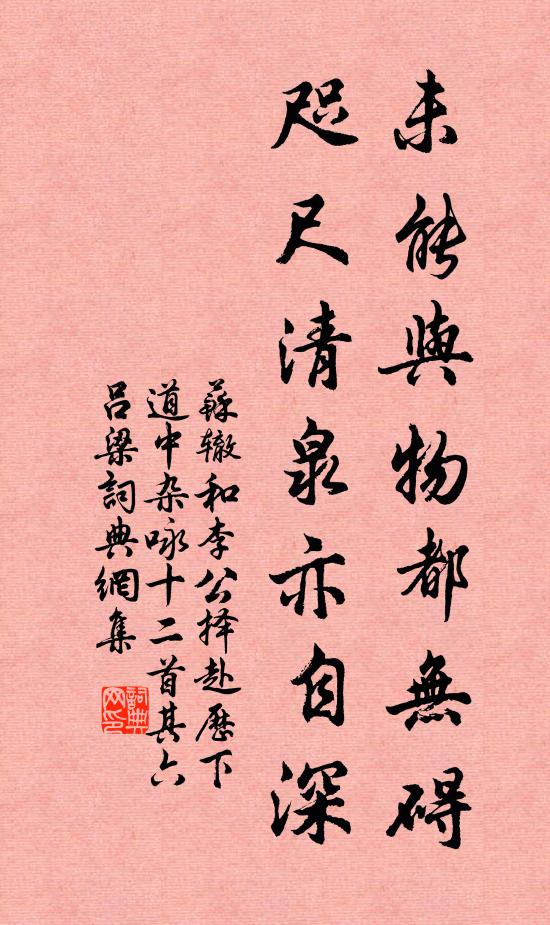 未能與物都無碍
咫尺清泉亦自深
蘇辙和李公择赴歷下
道中杂咏十二首其六
吕梁詞典網集
詞典
网印